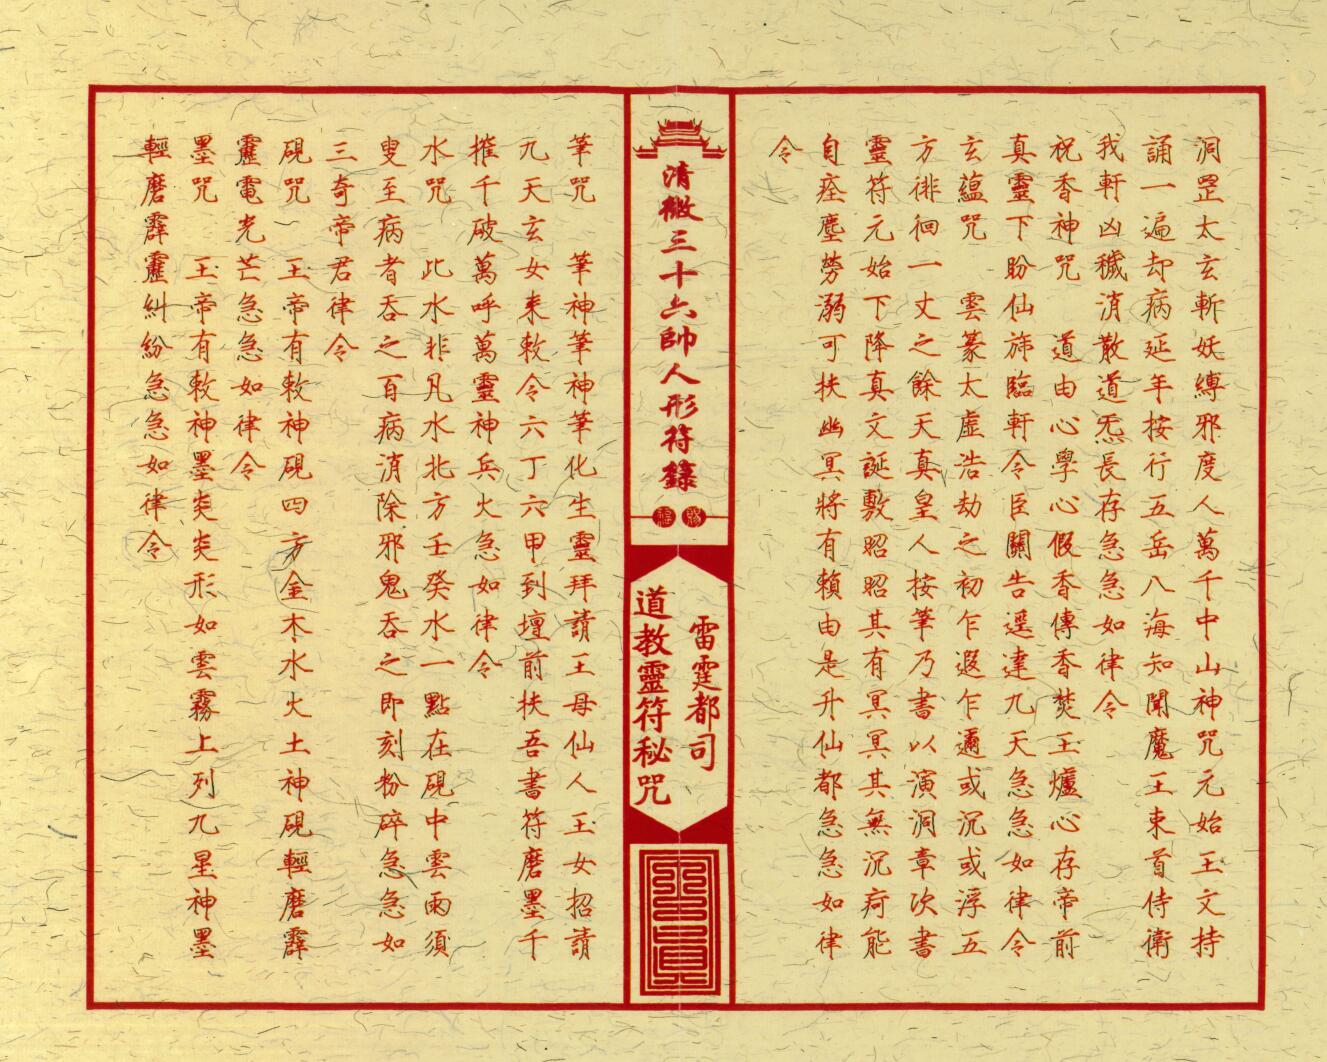 洞罡太玄斬妖縛邪度人萬千中山神咒元始玉文持
誦一遍却病延年按行五岳八海知聞魔王束首侍衛
我軒凶穢消散道炁長存急急如律令
祝香神咒　道由心學心假香傳香焚玉爐心存帝前
真靈下盼仙旆臨軒令臣關告逕達九天急急如律令
玄蘊咒　雲篆太虛浩劫之初乍遐乍邇或沉或浮五
方徘徊一丈之餘天真皇人按筆乃書以演洞章次書
靈符元始下降真文誕敷昭昭其有冥冥其無沉疴能
自痊塵勞溺可扶幽冥將有賴由是升仙都急急如律
令
清微三十六帥人形符籙
雷霆都司
道教靈符秘咒
筆咒　筆神筆神筆化生靈拜請王母仙人玉女招請
九天玄女来敕令六丁六甲到壇前扶吾書符磨墨千
摧千破萬呼萬靈神兵火急如律令
水咒　此水非凡水北方壬癸水一點在硯中雲雨須
叟至病者吞之百病消除邪鬼吞之即刻粉碎急急如
三奇帝君律令
硯咒　玉帝有敕神硯四方金木水火土神硯輕磨霹
靂電光芒急急如律令
墨咒　玉帝有敕神墨炎炎形如雲霧上列九星神墨
輕磨霹靂糾紛急急如律令